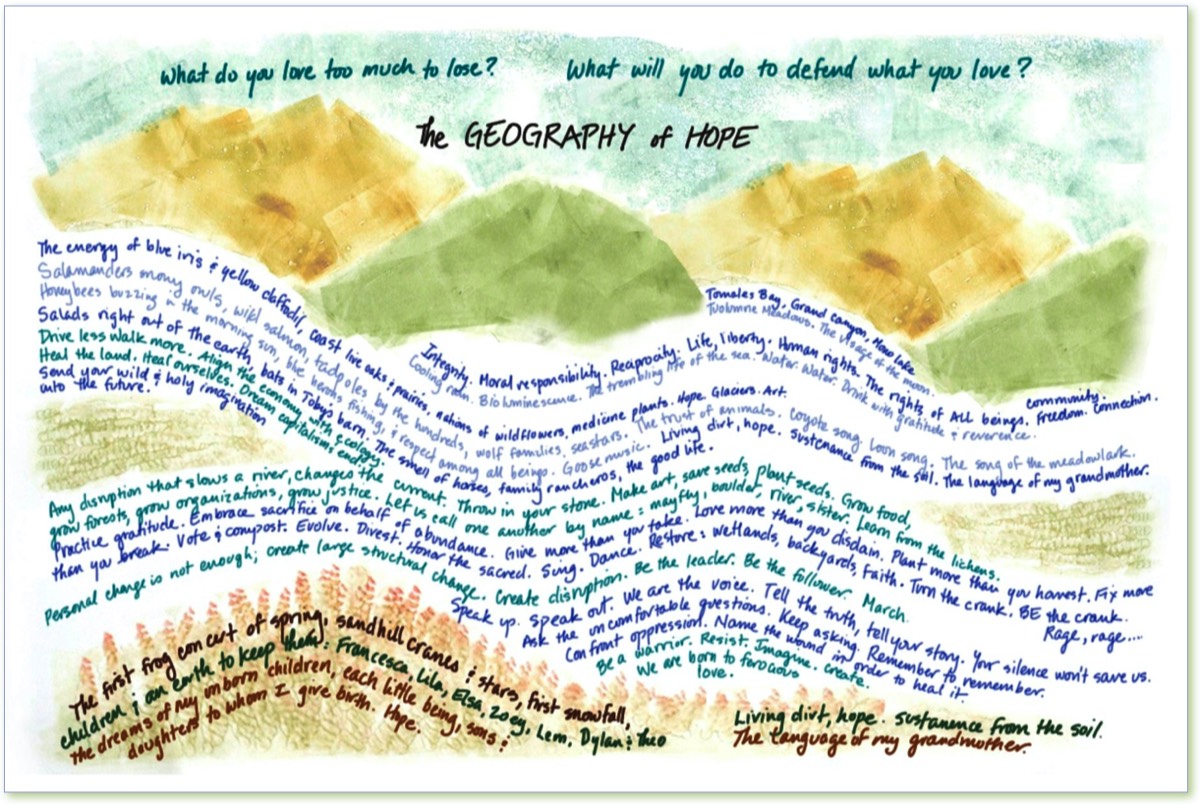 What do you love too much to lose? What will you do to defend what you love?
The GEOGRAPHY of HOPE
The energy of blue iris & yellow daffodil, coast live oaks & prairies, nations of wildflowers, medicine plants. Hope. Glaciers. Art.
Salamanders mony owls, wild salmon, tadpoles by the hundreds, wolf families, seastars. The trust of animals. Coyote song. Loon song. The song of the meadowlark.
Honeybees buzzing in the morning sun, blue herons fishing, & respect among all beings. Goose music. Living dirt, hope. Sustenance from the soil. The language of my grandmother.
Salads right out of the earth, bats in Toby's barn. The smell of horses, family rancheros, the good life.
Drive less walk more. Align the economy with ecology.
Heal the land. Heal ourselves. Dream capitalism's ended.
Send your wild & holy imagination
into the future.
Tomales Bay, Grand Canyon, Mono Lake
Tuolumne Meadows. The visage of the moon.
Integrity. Moral responsibility. Reciprocity. Life, liberty. Human rights. The rights of ALL beings. Freedom. Connection.
community.
Cooling rain. Bioluminescence. The trembling life of the sea. Water. Water. Drink with gratitude & reverence.
Any disruption that slows a river, changes the current. Throw in your stone. Make art, save seeds, plant seeds. Grow food,
grow forests, grow organizations, grow justice. Let us call one another by name: mayfly, boulder, river, sister. Learn from the lichens.
Practice gratitude. Embrace sacrifice on behalf of abundance. Give more than you take. Love more than you disdain. Plant more than you harvest. Fix more
than you break. Vote & compost. Evolve. Divest. Honor the sacred. Sing. Dance. Restore: wetlands, backyards, faith. Turn the crank. BE the crank.
Rage, rage....
Personal change is not enough; create large structural change. Create disruption. Be the leader. Be the follower. March.
Speak up. Speak out. We are the voice. Tell the truth, tell your story. Your silence won't save us.
Ask the uncomfortable questions. Keep asking. Remember to remember.
Confront oppression. Name the wound in order to heal it.
Be a warrior. Resist. Imagine. Create.
We are born to ferocious
love.
The first frog concert of spring, sandhill cranes & stars, first snowfall,
children & an earth to keep them: Francesca, Lila, Elsa, Zoey, Lem, Dylan & Theo
the dreams of my unborn children, each little being, sons &
daughters to whom I give birth. Hope.
Living dirt, hope. Sustanence from the soil.
The language of my grandmother.